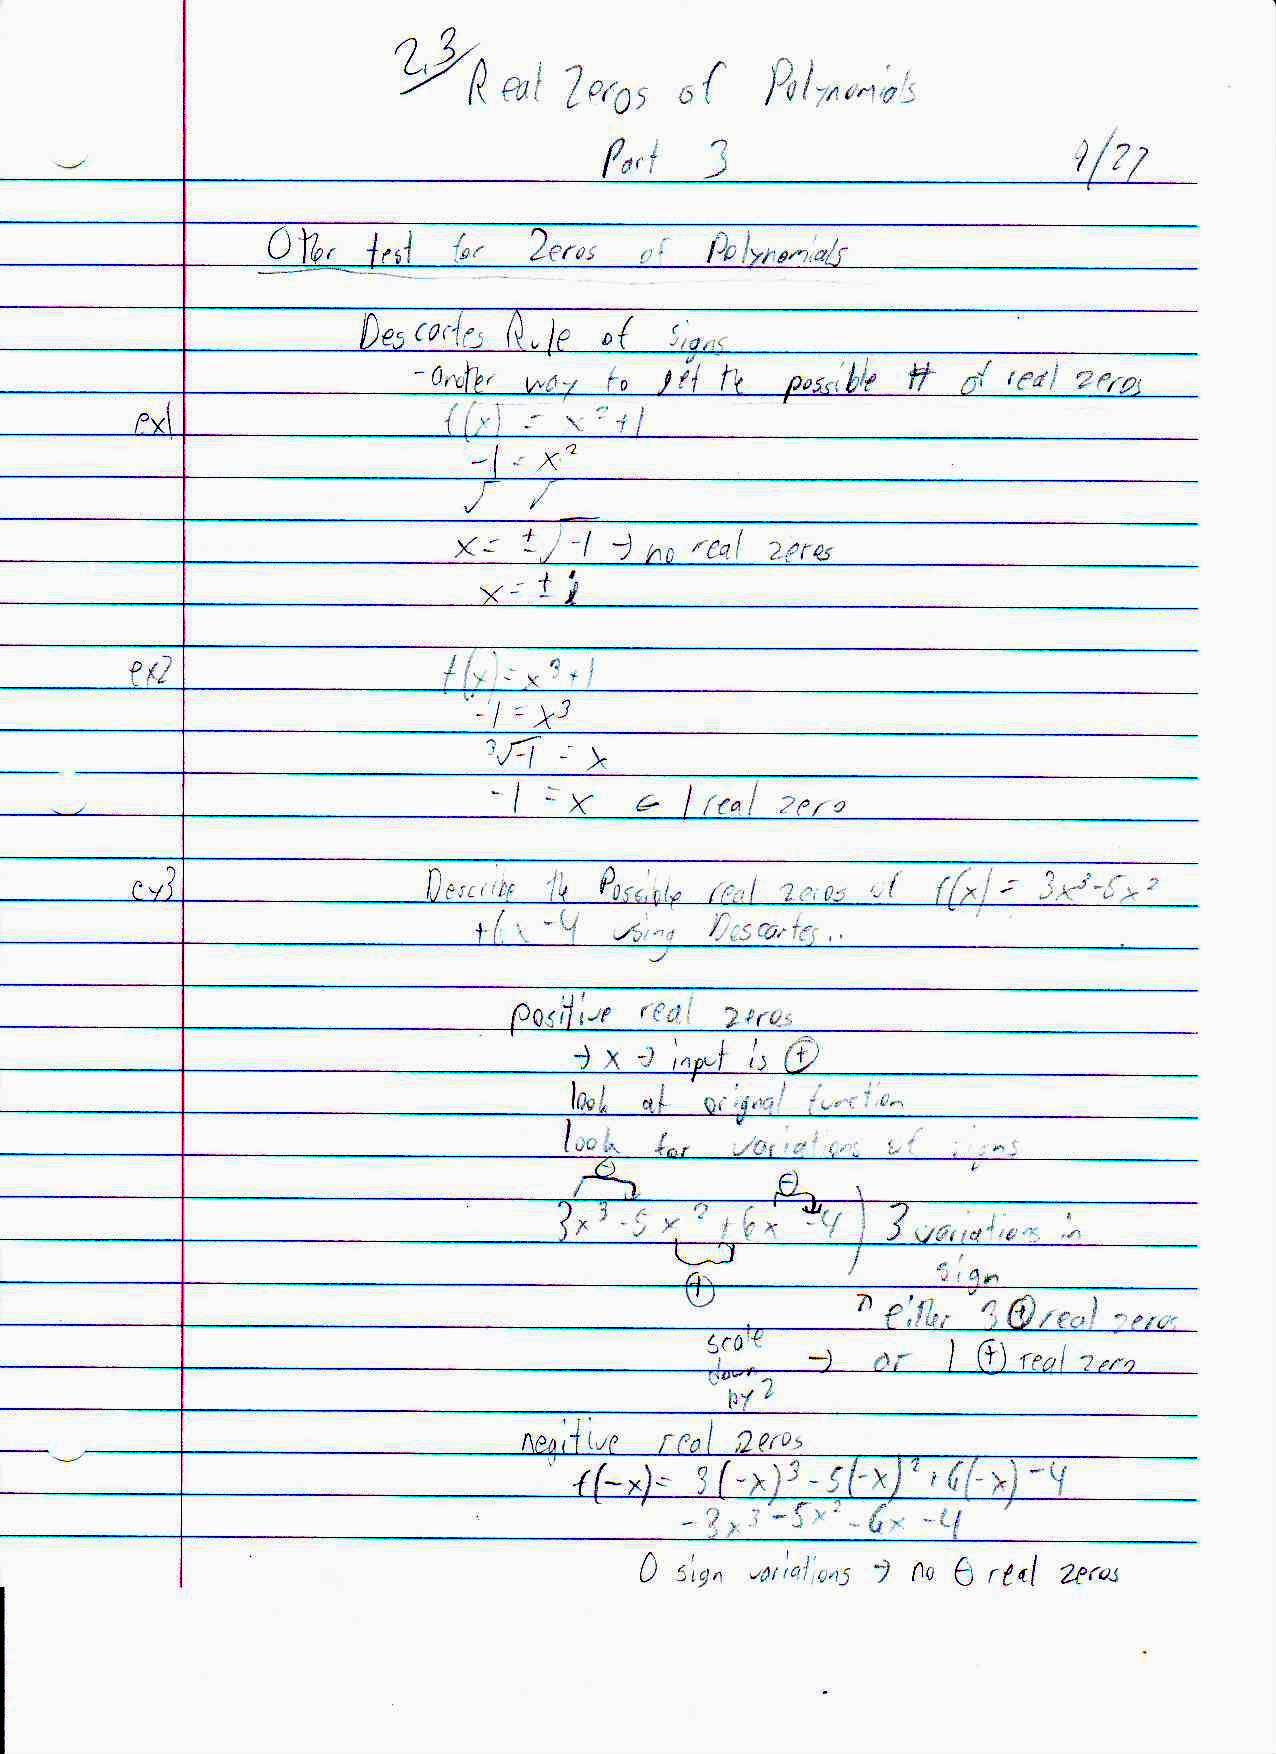 2.3 Real Zeros of Polynomials
Part 3 9/27
Other test for Zeros of Polynomials
Descartes Rule of signs
- another way to get the possible # of real zeros
ex1 f(x) = x² + 1
-1 = x²
√ √
x = ±√-1 → no real zeros
x = ± i
ex2 f(x) = x³ + 1
-1 = x³
³√-1 = x
-1 = x ← 1 real zero
ex3 Describe the Possible real zeros of f(x) = 3x³ - 5x²
+ 6x - 4 using Descartes..
positive real zeros
→ x → input is ⊕
look at orignal function
look for variations of signs
⊖ ⊖
3x³ - 5x² + 6x - 4 ) 3 variations in
sign
⊕
↗ either 3 ⊕ real zeros
scale down by 2 → or 1 ⊕ real zero
negitive real zeros
f(-x) = 3(-x)³ - 5(-x)² + 6(-x) - 4
-3x³ - 5x² - 6x - 4
0 sign variations → no ⊖ real zeros